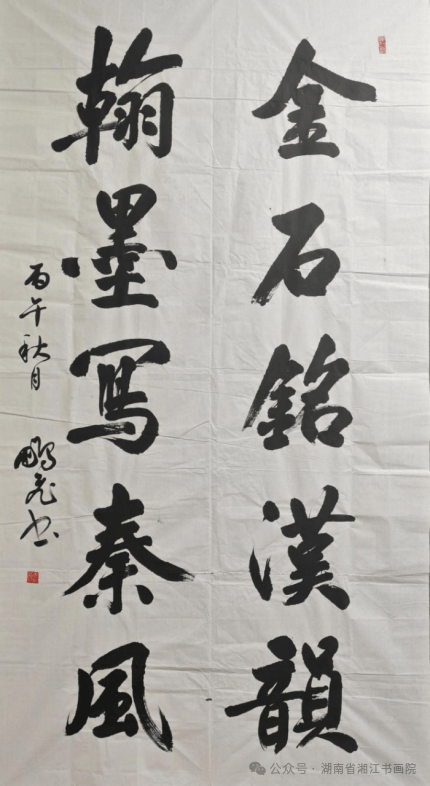 金石銘漢韻
翰墨寫秦風
丙午秋月
鵬飛书
公众号·湖南省湘江书画院